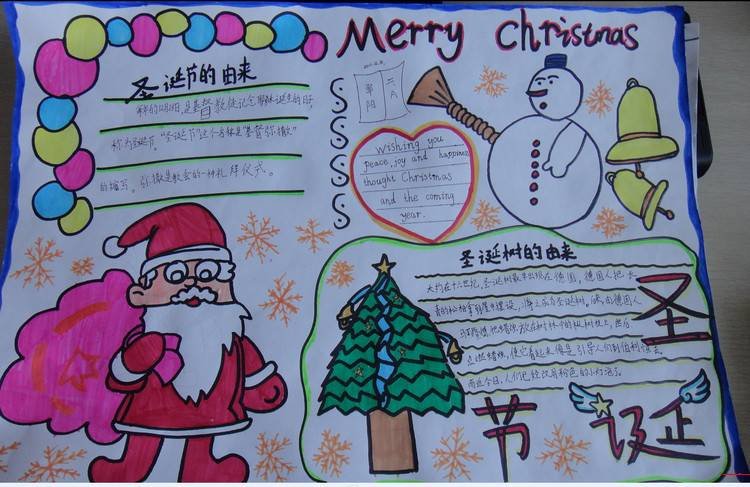 Merry Christmas
圣诞节的由来
每年的12月25日,是基督教徒记念耶稣诞生的日子,
称为圣诞节。“圣诞节”这个名称是“基督弥撒”
的缩写。弥撒是教会的一种礼拜仪式。
Wishing you
peace, joy and happiness
thought Christmas
and the coming
year.
圣诞树的由来
大约在十六世纪,圣诞树最早出现在德国,德国人把长
青的松柏拿到屋中摆设,
点燃蜡烛,使它看起来像是引导人们到伯利恒去。
而近今日,人们已经改用粉色的小灯泡了。
圣
诞
节